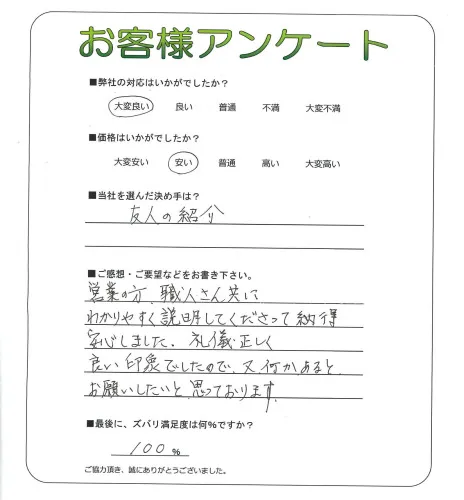 お客様アンケート
■弊社の対応はいかがでしたか？
大変良い 良い 普通 不満 大変不満
■価格はいかがでしたか？
大変安い 安い 普通 高い 大変高い
■当社を選んだ決め手は？
友人の紹介
■ご感想・ご要望などをお書き下さい。
営業の方、職人さん共に
わかりやすく説明してくださって納得
安心しました。礼儀正しく
良い印象でしたので、又何かあると
お願いしたいと思っております。
■最後に、ズバリ満足度は何％ですか？
100 %
ご協力頂き、誠にありがとうございました。